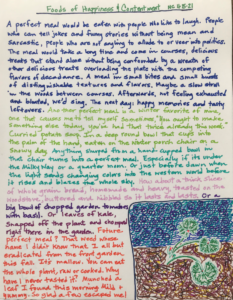 Foods of Happiness & Contentment
A perfect meal would be eaten with people who like to laugh. People
who can tell jokes and funny stories without being mean and
sarcastic, people who are not angling to allude to or veer into politics.
The meal would take a long time and come in courses, delicious
treats that stand alone without being confused by a breath of
other delicious treats overlapping the plate with competing
flavors of decadence. A meal in small bites and small bursts
of distinguishable textures and flavors, maybe a slow stroll
in the woods between courses. Afterwards, not feeling exhausted
and bloated, we'd sing. The next day: happy memories and tasty
leftovers.
one that causes me to tell myself sometimes, "You ought to make
something else today, you've had that toted already this week."
Curried potato soup. In a deep round bowl that snugs into
the palm of the hand, eaten on the porch chair on a
sunny day. Anything slurped from a hand-cupped bowl in
that chair turns into a perfect meal. Especially if its under
the milky way or a quarter moon. Or just before dawn when
the light sends changing colors into the western world before
it rises and blazes the whole sky.
of whole grain bread, homemade and heavy, toasted on the
woodstove, buttered and
big bowl of chopped garden tomatoes
with basil. Or leaves of kale.
Snapped off the plant and chopped
right there in the garden. Future
perfect meal: That weed whose
name I didn't know that I all but
eradicated from the front garden
this fall. It's mallow. You can eat
the whole plant, raw or cooked. Why
have I never tasted it? Munched a
leaf I found this morning. Mild +
yummy. So glad a few escaped me!